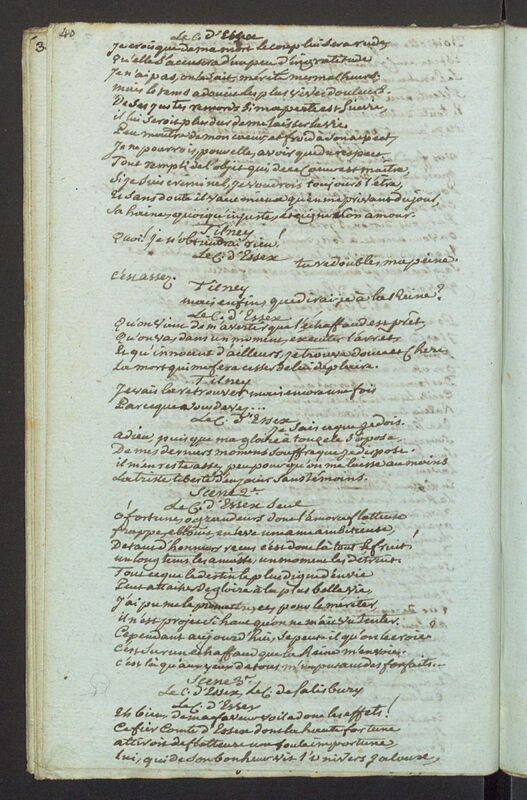 40
3
Le C. d'Essex
Je crois que de ma mort le coup lui sera rude,
Qu'elle s'accusera d'un peu d'ingratitude
Je n'ai pas, on le sait, mérité mes malheurs
mais le tems adoucit les plus vives douleurs.
De ses justes remords si ma perte est suivie
il lui seroit plus dur de me laisser la vie
Peu maître de mon cœur, et froid à son aspect
Je ne pourrois, pour elle, avoir que du respect
Tout rempli de l'objet qui de ce cœur est maître,
Si je suis criminel, je voudrois toujours l'être,
Et sans doute il vaut mieux qu'en me privant du jour,
Sa haine, quoiqu'injuste, éteigne son amour.
Tilney
Quoi! je n'obtiendrai rien!
Le C. d'Essex
tu redoubles ma peine
c'en assez.
Tilney
mais enfin, que dirai-je à la Reine?
Le C. d'Essex
Qu'on vient de m'avertir que l'échaffaud est prêt,
Qu'on va, dans un moment, exécuter l'arrêt
Et qu'innocent d'ailleurs, je trouve douce et chere
La mort qui me fera cesser de lui déplaire.
Tilney
Je vais la retrouver, mais encore une fois
Par ce que vous devez...
Le C. d'Essex
Je sais ce que je dois.
adieu, puisque ma gloire à ton zele s'opose
De mes derniers momens souffre que je dispose
il m'en reste assez peu pour qu'on me laisse au moins
La triste liberté d'en jouir sans témoins.
Scene 2e
Le C. d'Essex seul
ô fortune, ô grandeurs dont l'amorce flatteuse
frappe, éblouit, enivre une ame ambitieuse,
De tant d'honneurs reçus c'est donc là tout le fruit!
un long tems les amasse, un moment les détruit.
Tout ce que le destin le plus digne d'envie
Peut attaiter de gloire à la plus belle vie,
J'ai pu me le promettre, et pour le mériter,
il n'est projet si haut qu'on ne m'ait vu tenter.
Cependant aujourd'hui, se peut-il qu'on le croie?
C'est sur un échaffaud que la Reine m'envoie.
c'est là qu'aux yeux de tous m'imputant des forfaits...
Scene 3e
Le C. d'Essex, le C. de Salisbury
Le C. d'Essex
Eh bien, de ma faveur voilà donc les effets!
Ce fier Comte d'Essex dont la haute fortune
attiroit de flatteurs une foule importune
Lui, qui de son bonheur vit l'univers jaloux,